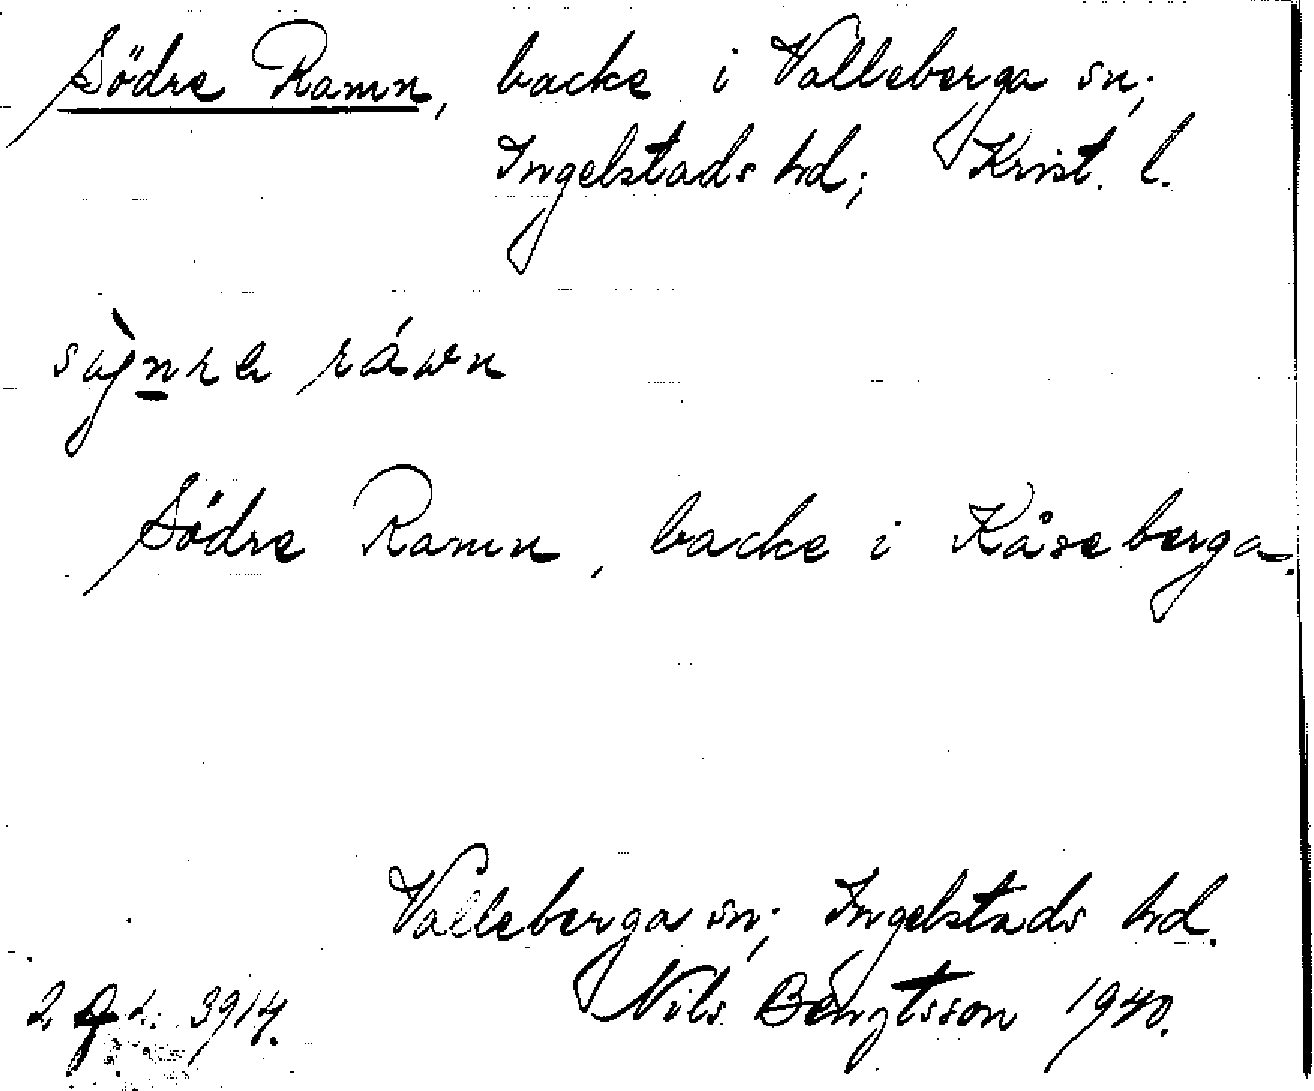 Södre Ramn, backe i Valleberga sn;
Ingelstads hd; Krist. l.
Södre Ramn, backe i Kåseberga.
Valleberga sn; Ingelstads hd.
3914. Nils Bengtsson 1940.